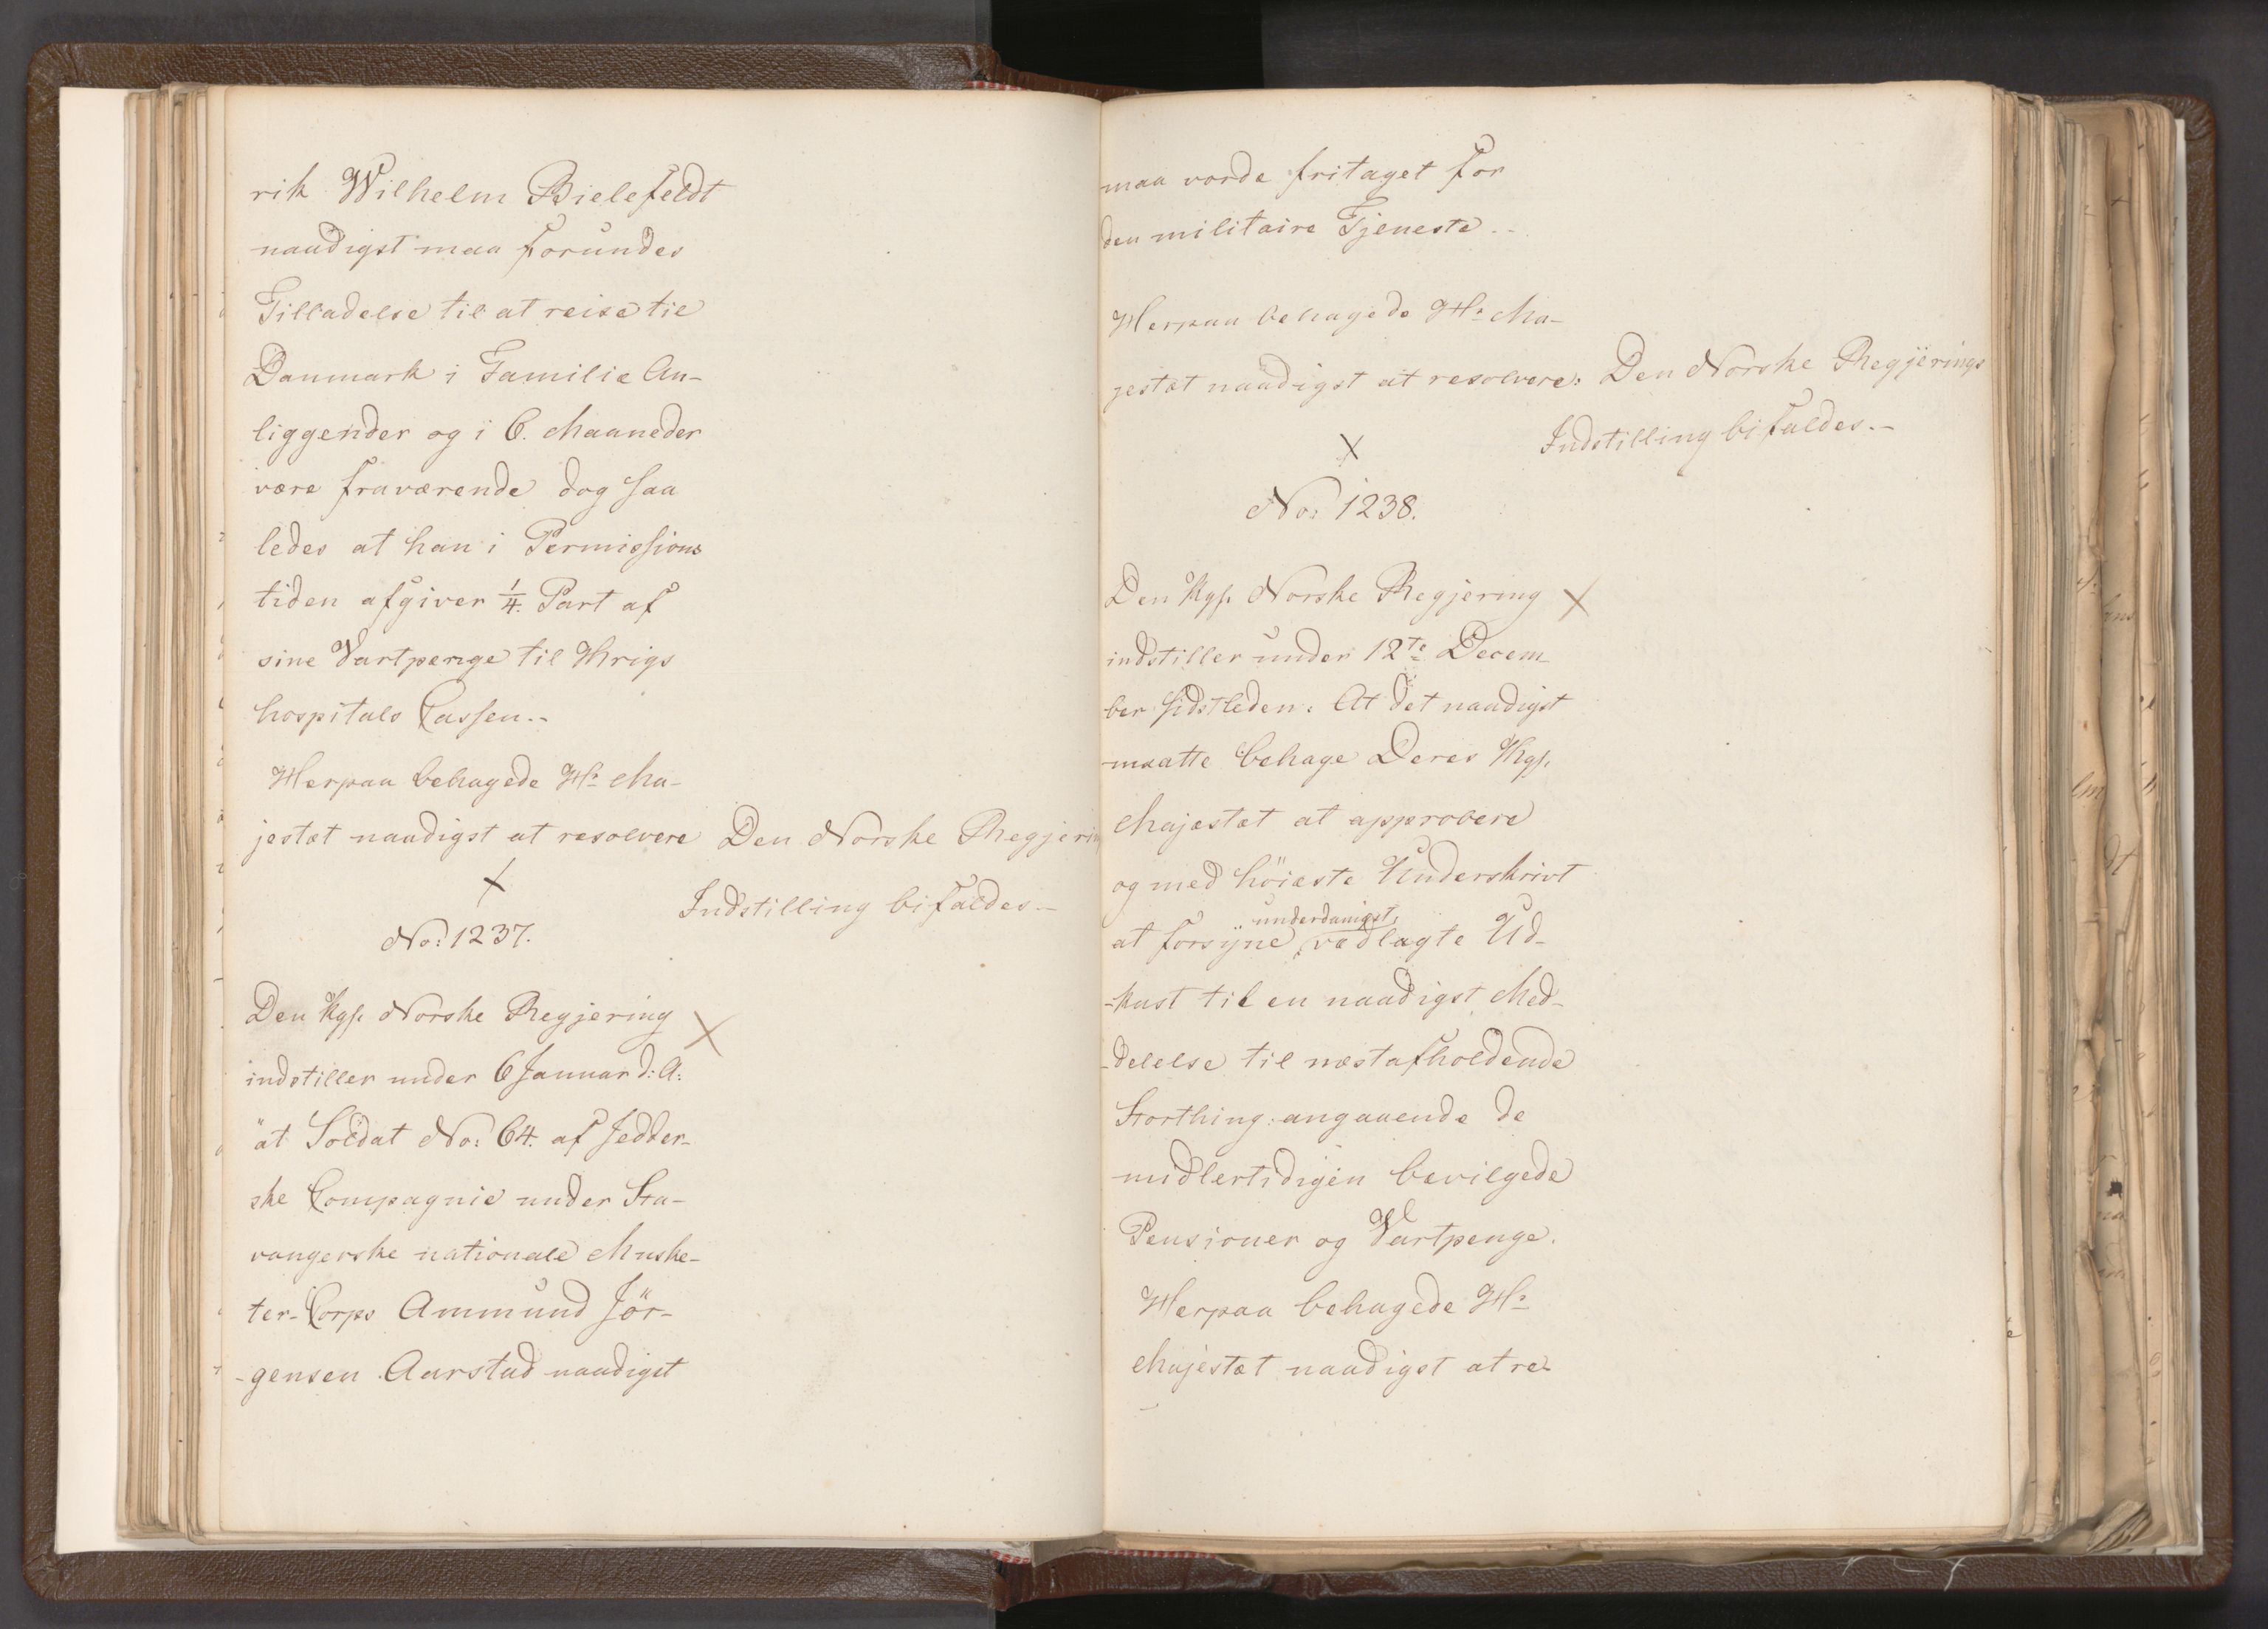 rik Wilhelm Bielefeldt
naadigst maa forundes
Tilladelse til at reise til
Danmark i Familie An-
liggender og i 6. Maaneder
være fraværende dog saa
ledes at han i Permissions
tiden afgiver 1/4. Part af
sine Vartpenge til Krigs
hospitals Cassen.-
Herpaa behagede Hs Ma-
jestæt naadigst at resolvere Den Norske Regjerin
Indstilling bifaldes.-
X
No: 1237.
Den Kgl. Norske Regjering X
indstiller under 6 Januar d: A:
"at Soldat No: 64. af Jedder-
ske Compagnie under Sta-
vangerske nationale Muske-
ter-Corps Ammund Jör-
-gensen Aarstad naadigst
maa vorde fritaget for
den militaire Tjeneste.-
Herpaa behagede Hs Ma-
jestæt naadigst at resolvere: Den Norske Regjerings
Indstilling bifaldes.-
X
No: 1238.
Den Kgl. Norske Regjering X
indstiller under 12te Decem-
ber sidstleden: At det naadigst
maatte behage Deres Kgl.
Majestæt at approbere
og med höieste Underskrivt
at forsyne underdanigst vedlagte Ud-
-kast til en naadigst Med-
-delelse til næstafholdende
Storthing: angaaende de
midlertidigen bevilgede
Pensioner og Vartpenge.
Herpaa behagede Hs
Majestæt naadigst at re-